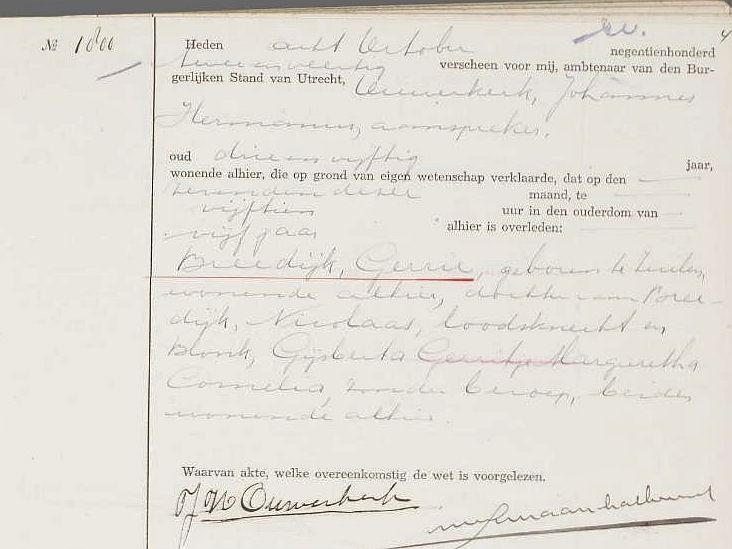 № 1800
Heden acht October negentienhonderd
twee en veertig verscheen voor mij, ambtenaar van den Bur-
gerlijken Stand van Utrecht, Ouwerkerk, Johannes
Hermanus, aanspreker,
oud drie en vijftig jaar,
wonende alhier, die op grond van eigen wetenschap verklaarde, dat op den
zevenden dezer maand, te
vijftien uur in den ouderdom van
vijf jaar alhier is overleden:
Breedijk, Gerrie, geboren te Zuilen,
wonende alhier, dochter van Bree-
dijk, Nicolaas, loodsknecht en
Blonk, Gijsberta Gerritje Margaretha
Cornelia, zonder beroep, beiden
wonende alhier.
Waarvan akte, welke overeenkomstig de wet is voorgelezen.
J H Ouwerkerk